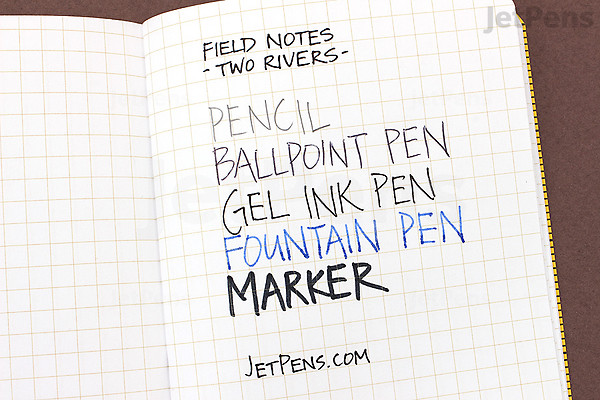 JetPens
FIELD NOTES
-TWO RIVERS-
PENCIL
BALLPOINT PEN
GEL INK PEN
FOUNTAIN PEN
MARKER
JETPENS.COM